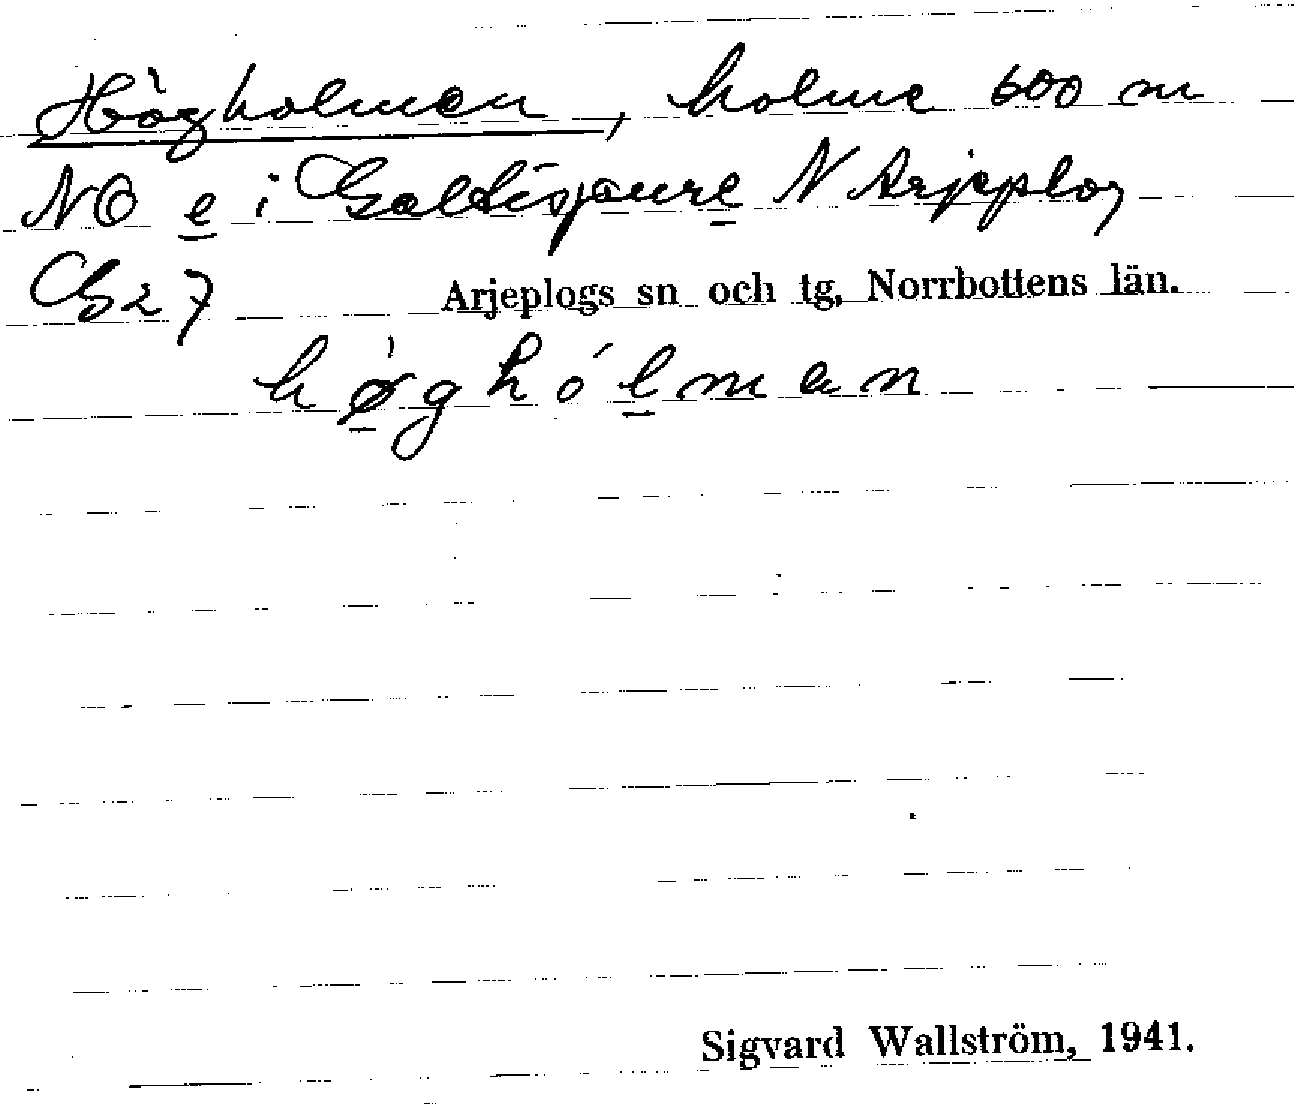 Högholmen, holme 600 m
NO e i Galtispaure N Arjeplog
G27
Arjeplogs sn och tg, Norrbottens län.
hø̀ghólman
Sigvard Wallström, 1941.